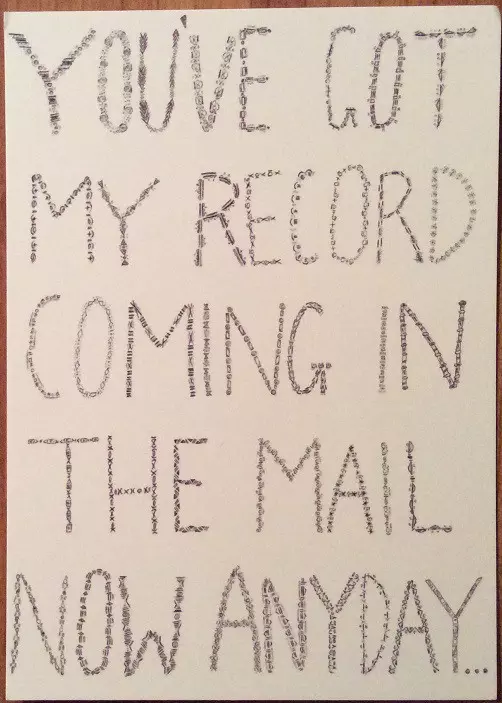 YOU'VE GOT
MY RECORD
COMING IN
THE MAIL
NOW ANYDAY...